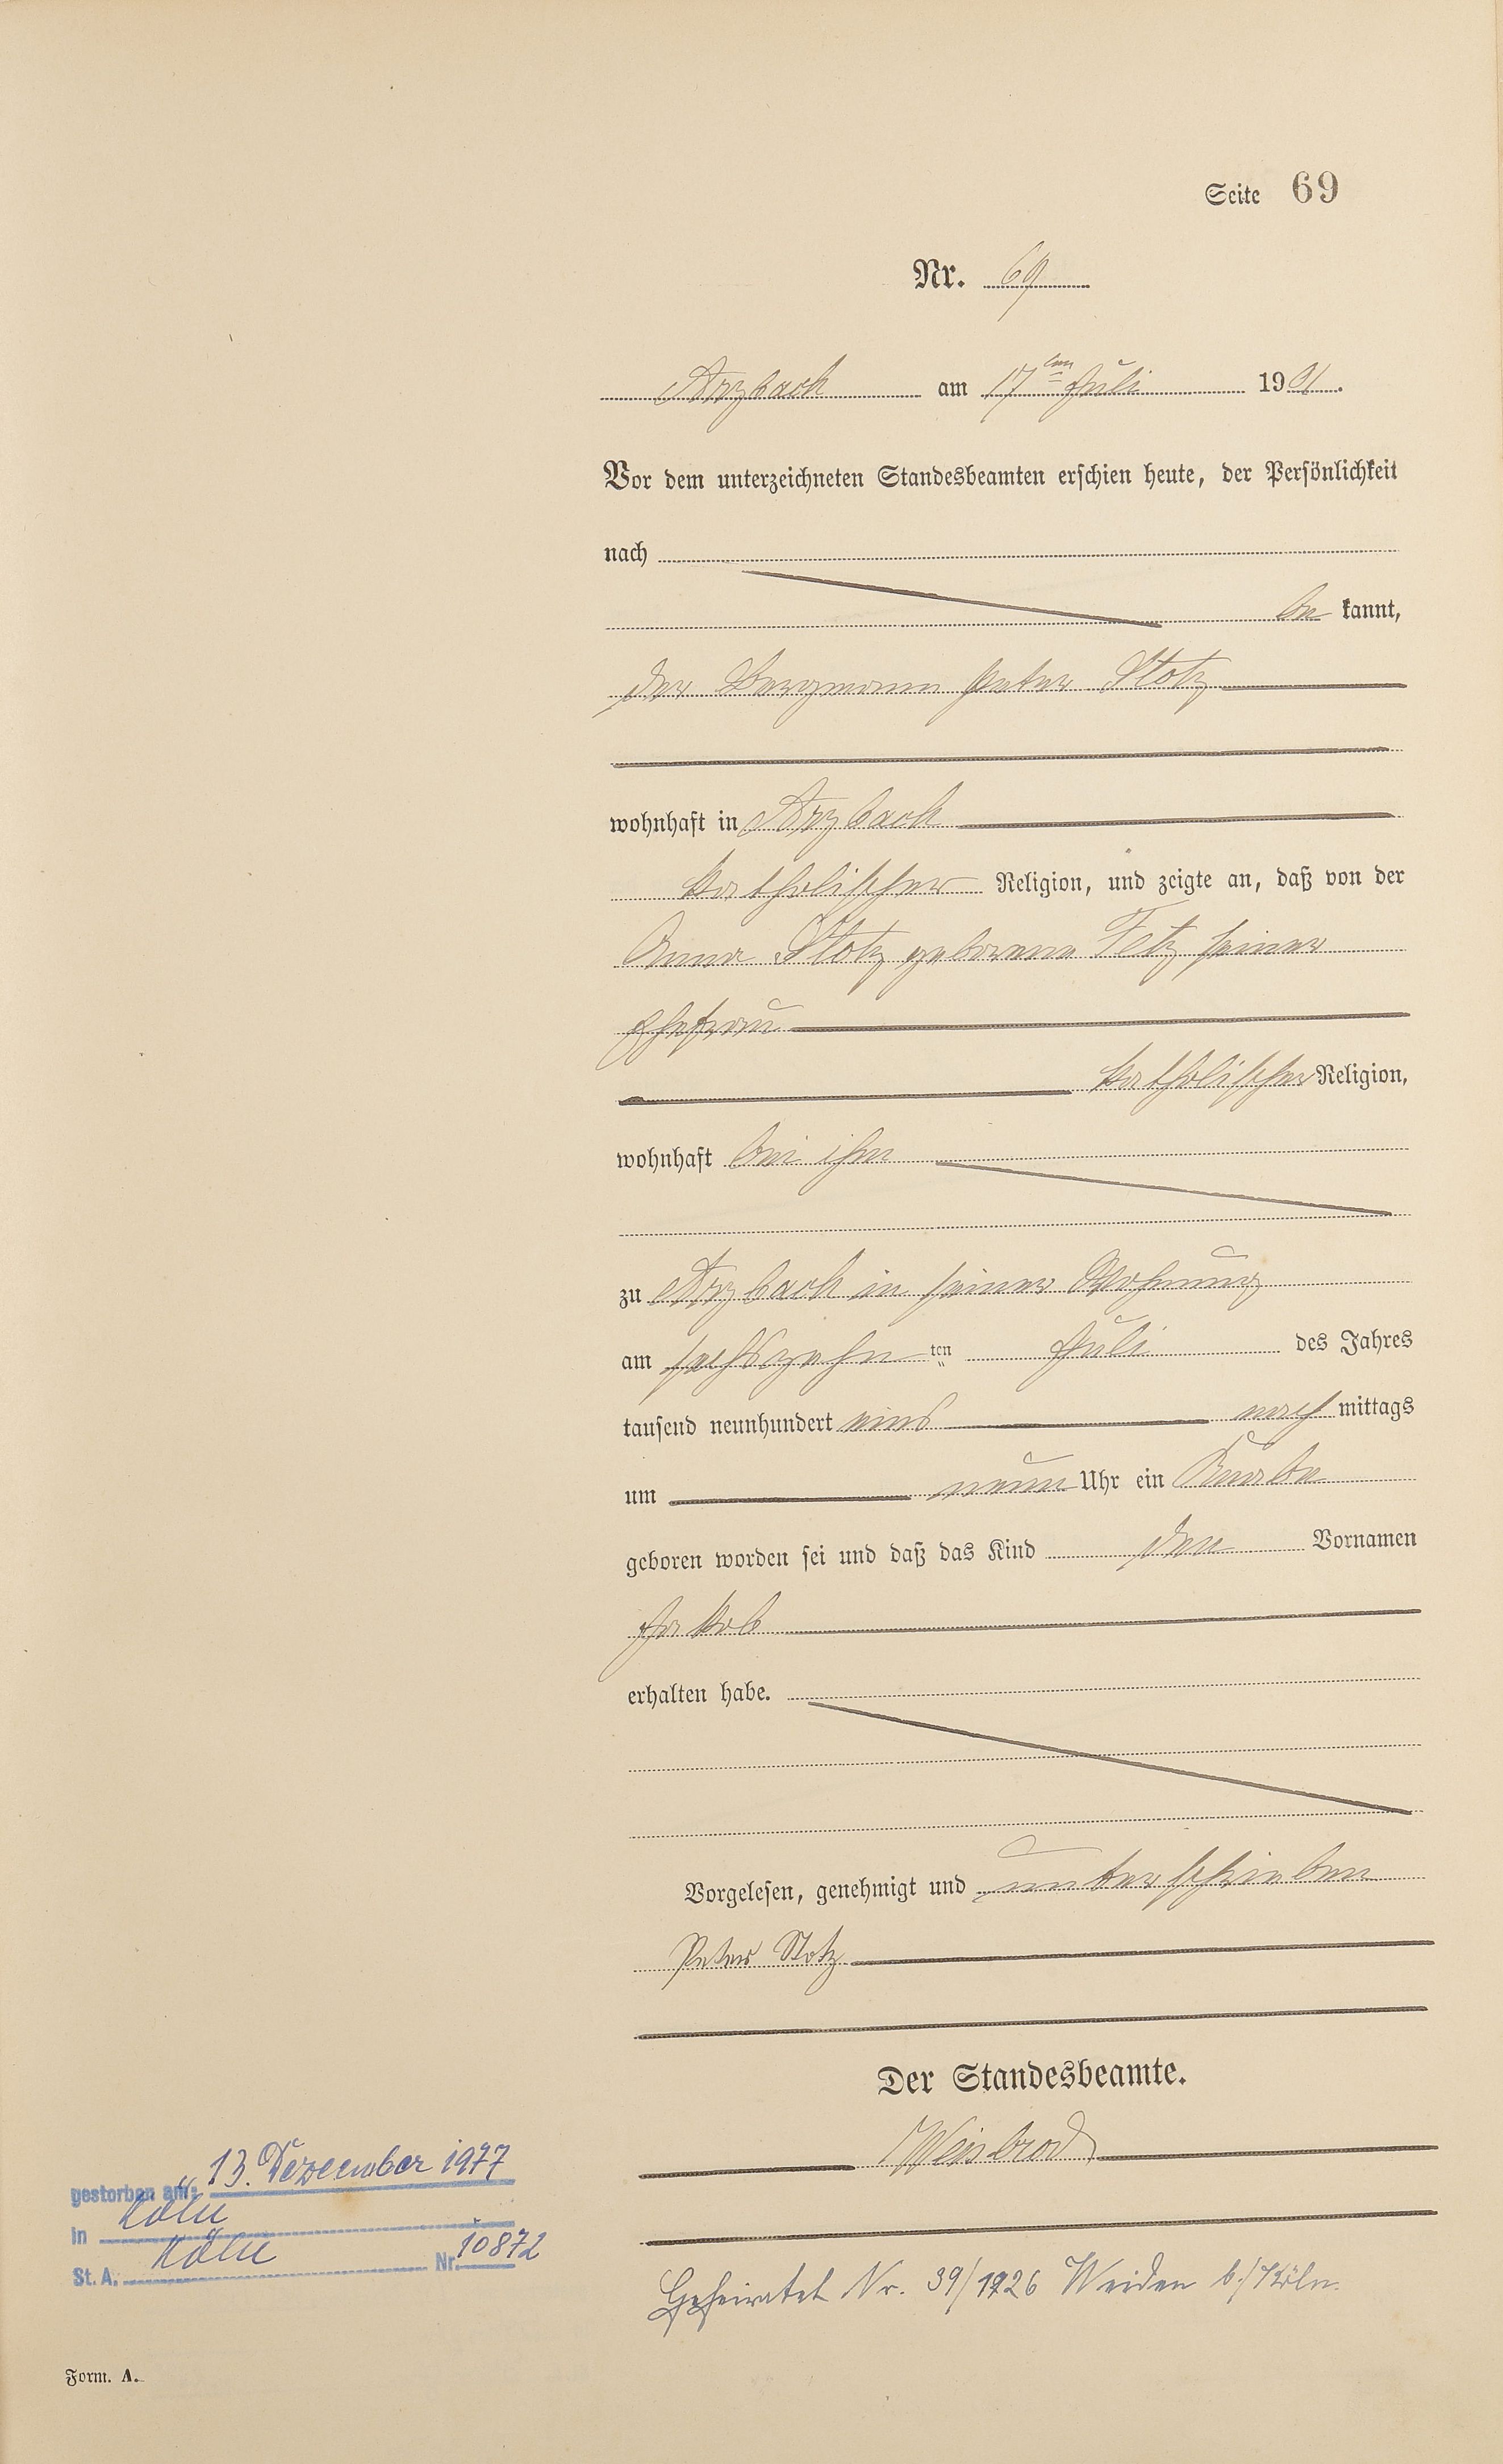 Seite 69
Nr. 69
Arzbach am 17ten Juli 1901.
Vor dem unterzeichneten Standesbeamten erschien heute, der Persönlichkeit
nach
be kannt,
der Bergmann Peter Stotz
wohnhaft in Arzbach
katholischer Religion, und zeigte an, daß von der
Anna Stotz geborene Fetz seiner
Ehefrau
katholischer Religion,
wohnhaft bei ihm
zu Arzbach in seiner Wohnung
am sechszehn ten Juli des Jahres
tausend neunhundert eins nach mittags
um neun Uhr ein Knabe
geboren worden sei und daß das Kind den Vornamen
Jakob
erhalten habe.
Vorgelesen, genehmigt und unterschrieben
Peter Stotz
Der Standesbeamte.
Weisbrod
gestorben am: 13. Dezember 1977
in Köln
St. A. Köln Nr. 10872
Geheiratet Nr. 39/1926 Weiden b./Köln.
Form. A.